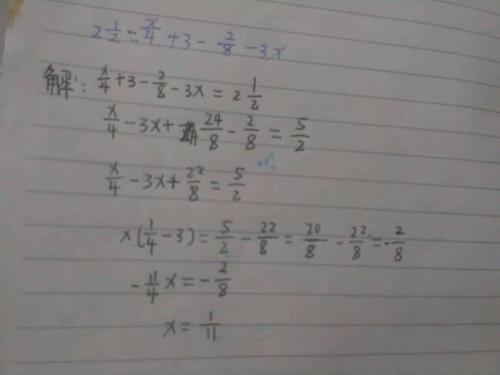 2 1/2 = x/4 + 3 - 2/8 - 3x
解: x/4 + 3 - 2/8 - 3x = 2 1/2
x/4 - 3x + 24/8 - 2/8 = 5/2
x/4 - 3x + 22/8 = 5/2
x(1/4 - 3) = 5/2 - 22/8 = 20/8 - 22/8 = -2/8
-11/4 x = -2/8
x = 1/11